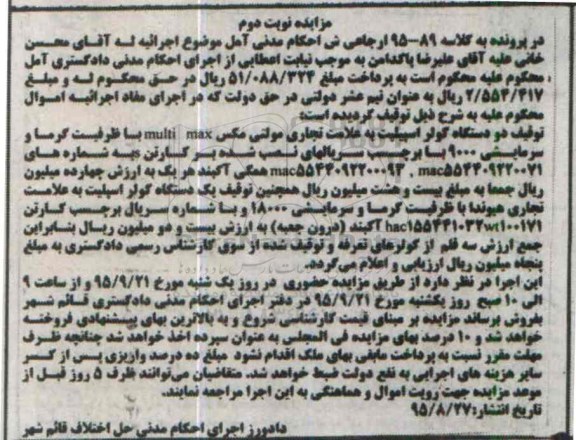 مزایده نوبت دوم
در پرونده به کلاسه ۸۹-۹۵ ارجاعی ش احکام مدنی آمل موضوع اجرائیه له آقای محسن
خانی علیه آقای علیرضا پاکدامن به موجب نیابت اعطایی از اجرای احکام مدنی دادگستری آمل
محکوم علیه محکوم است به پرداخت مبلغ ۵۱/۰۸۸/۳۲۴ ریال در حق محکوم له و مبلغ
۲/۵۵۴/۴۱۷ ریال به عنوان نیم عشر دولتی در حق دولت که در اجرای مفاد اجرائیه اموال
محکوم علیه به شرح ذیل توقیف گردیده است:
توقیف دو دستگاه کولر اسپیلیت به علامت تجاری مولتی مکس multi max با ظرفیت گرما و
سرمایشی ۹۰۰۰ با برچسب سریالهای نصب شده بر کارتن به شماره های
mac۵۵۴۴۰۹۲۲۰۰۷۱ , mac۵۵۴۴۰۹۲۲۰۰۰۹۳ همگی آکبند هر یک به ارزش چهارده میلیون
ریال جمعا به مبلغ بیست و هشت میلیون ریال همچنین توقیف یک دستگاه کولر اسپلیت به علامت
تجاری هیوندا با ظرفیت گرما و سرمایشی ۱۸۰۰۰ و با شماره سریال برچسب کارتن
hac۱۵۵۴۴۱۰۳۲wt۱۰۰۱۷۱ آکبند (درون جعبه) به ارزش بیست و دو میلیون ریال بنابراین
جمع ارزش سه قلم از کولرهای تعرفه و توقیف شده از سوی کارشناس رسمی دادگستری به مبلغ
پنجاه میلیون ریال ارزیابی و اعلام می‌گردد.
این اجرا در نظر دارد از طریق مزایده حضوری در روز یک شنبه مورخ ۹۵/۹/۲۱ و از ساعت ۹
الی ۱۰ صبح روز یکشنبه مورخ ۹۵/۹/۲۱ در دفتر اجرای احکام مدنی دادگستری قائم شهر
بفروش برساند مزایده بر مبنای قیمت کارشناسی شروع و به بالاترین بهای پیشنهادی فروخته
خواهد شد و ۱۰ درصد بهای مزایده فی المجلس به عنوان سپرده اخذ خواهد شد چنانچه ظرف
مهلت مقرر نسبت به پرداخت مابقی بهای ملک اقدام نشود مبلغ ده درصد واریزی پس از کسر
سایر هزینه های اجرایی به نفع دولت ضبط خواهد شد. متقاضیان می‌توانند ظرف ۵ روز قبل از
موعد مزایده جهت رویت اموال و هماهنگی به این اجرا مراجعه نمایند.
تاریخ انتشار: ۹۵/۸/۲۷
دادورز اجرای احکام مدنی حل اختلاف قائم شهر